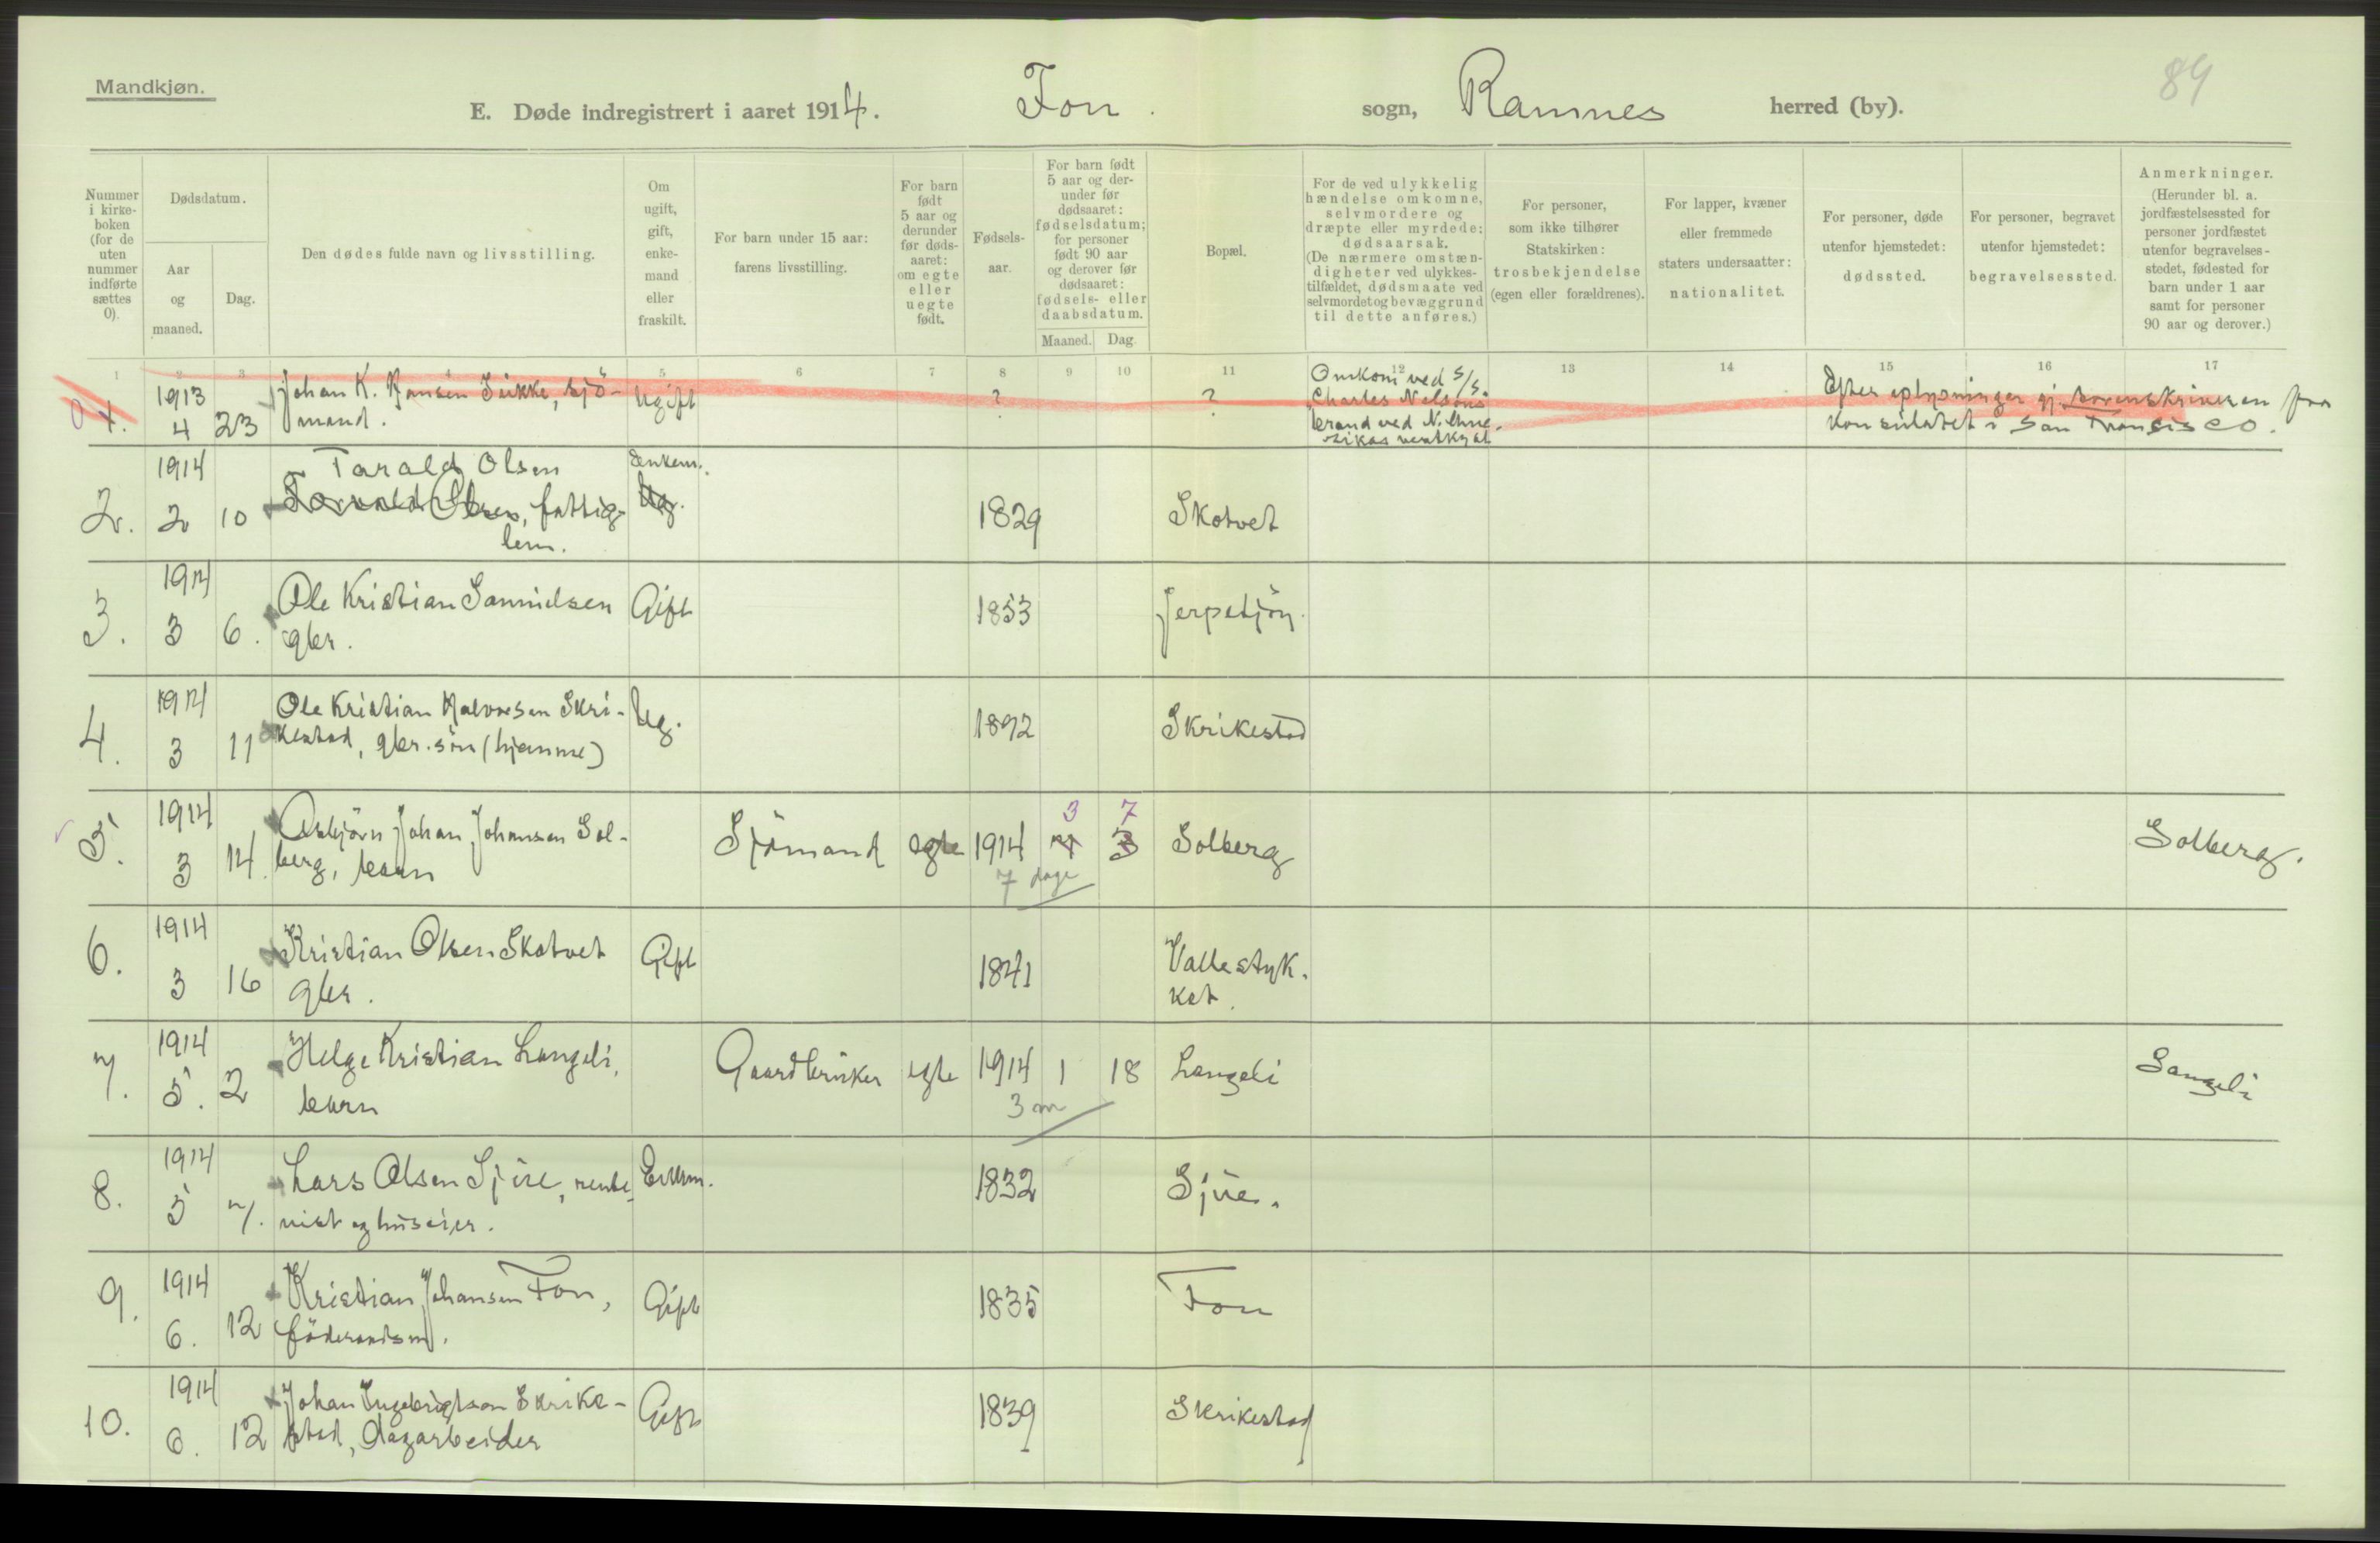 Mandkjøn.
84
E. Døde indregistrert i aaret 1914. Fon. sogn, Ramnes herred (by).
Nummer i kirke- boken (for de uten nummer indførte sættes 0).
Dødsdatum.
Aar og maaned.
Dag.
Den dødes fulde navn og livsstilling.
Om ugift, gift, enke- mand eller fraskilt.
For barn under 15 aar: farens livsstilling.
For barn født 5 aar og derunder før døds- aaret: om egte eller uegte født.
Fødsels- aar.
For barn født 5 aar og der- under før dødsaaret: fødselsdatum; for personer født 90 aar og derover før dødsaaret: fødsels- eller daabsdatum.
Maaned. Dag.
Bopæl.
For de ved ulykkelig hændelse omkomne, selvmordere og dræpte eller myrdede: dødsaarsak. (De nærmere omstæn- digheter ved ulykkes- tilfældet, dødsmaate ved selvmordet og bevæggrund til dette anføres.)
For personer, som ikke tilhører Statskirken: trosbekjendelse (egen eller forældrenes).
For lapper, kvæner eller fremmede staters undersaatter: nationalitet.
For personer, døde utenfor hjemstedet: dødssted.
For personer, begravet utenfor hjemstedet: begravelsessted.
Anmerkninger. (Herunder bl. a. jordfæstelsessted for personer jordfæstet utenfor begravelses- stedet, fødested for barn under 1 aar samt for personer 90 aar og derover.)
1 2 3 4 5 6 7 8 9 10 11 12 13 14 15 16 17
0 1. 1913 4 23 Johan K. Hansen Sukke, sjö-
mand. Ugift ? ? Omkom ved S/S.
Charles Nelsons
brand ved N. Ame-
rikas vestkyst
Efter oplysninger gj. sorenskriveren fra
konsulatet i San Fransisco.
2. 1914 2 10 Tarald Olsen
fattig-
lem. Enkem. Ug. 1829 Skotvet
3. 1914 3 6. Ole Kristian Samuelsen
gbr. Gift 1853 Jerpetjön.
4. 1914 3 11 Ole Kristian Halvorsen Skri-
kestad, gbr. sön (hjemme) Ug. 1892 Skrikestad
5. 1914 3 14. Asbjörn Johan Johansen Sol-
berg, barn Sjömand egte 1914 3 7 Solberg Solberg.
7 dage
6. 1914 3 16 Kristian Olsen Skotvet
gbr. Gift 1841 Vallestyk-
ket.
7. 1914 5. 2 Helge Kristian Langeli,
barn Gaardbruker egte 1914 1 18 Langeli Langeli
3 m
8. 1914 5 7. Lars Olsen Sjue, rente-
nist og huseier. Enkem. 1832 Sjue.
9. 1914 6. 12 Kristian Johansen Fon,
föderaadsm. Gift 1835 Fon
10. 1914 6. 12 Johan Ingebrigtsen Skrike-
stad, dagarbeider Gift 1839 Skrikestad